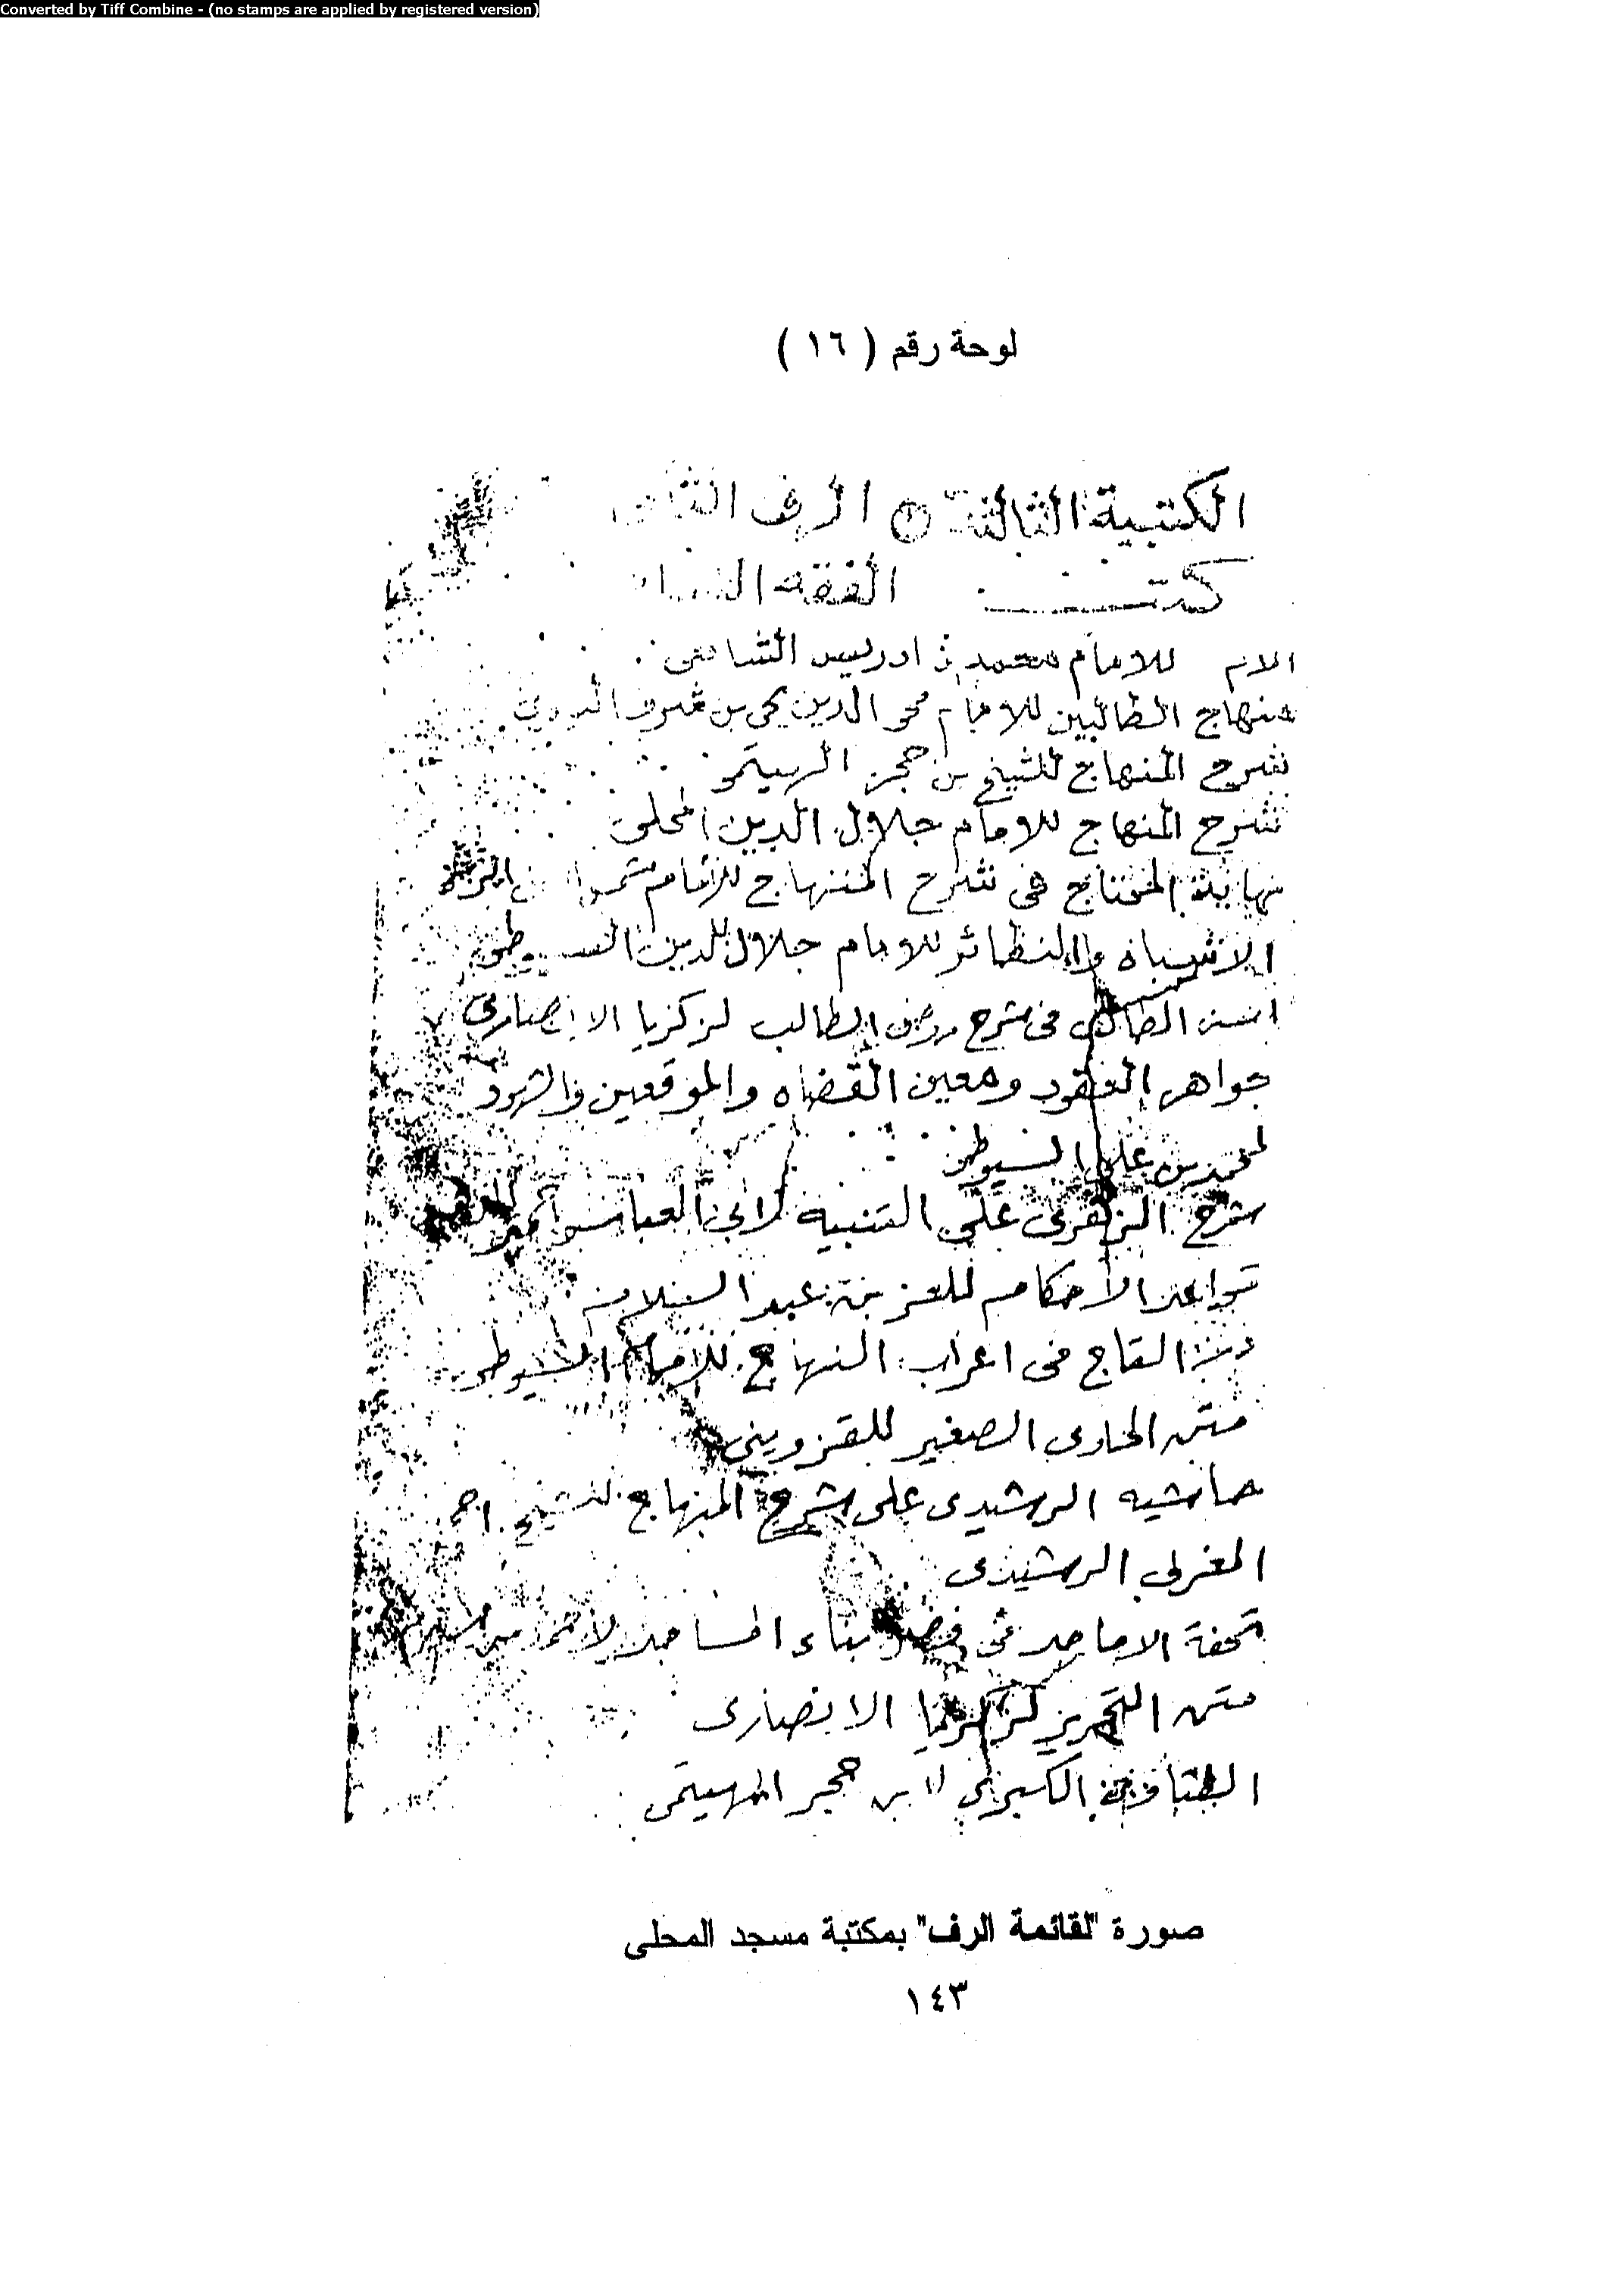 Converted by Tiff Combine - (no stamps are applied by registered version)
لوحة رقم ( ١٦ )
الكتبية الثالثة الرف
كتب الفقه
الام للامام محمد بن ادريس الشافعى
منهاج الطالبين للامام محى الدين يحى بن شرف النووى
شرح المنهاج للشيخ بن حجر الهيتمى
شرح المنهاج للامام جلال الدين المحلى
نهاية المحتاج فى شرح المنهاج للامام
الاشباه والنظائر للامام جلال الدين السيوطى
اسنى المطالب فى شرح روض الطالب لزكريا الانصارى
جواهر العقود ومعين القضاه والموقعين والشهود
لمحمد بن على السيوطى
شرح على التنبية لابى العباس
قواعد الاحكام للعز بن عبد السلام
التاج فى اعراب المنهاج للامام السيوطى
متن الحاوى الصغير للقزوينى
حاشيه الرشيدى على شرح المنهاج للشيخ احمد
المغربى الرشيدى
تحفة الاماجد فى فضل بناء المساجد لاحمد بن
متن التحرير لزكريا الانصارى
الفتاوى الكبرى لابن حجر الهيتمى
صورة "لقائمة الرف" بمكتبة مسجد المحلى
١٤٣